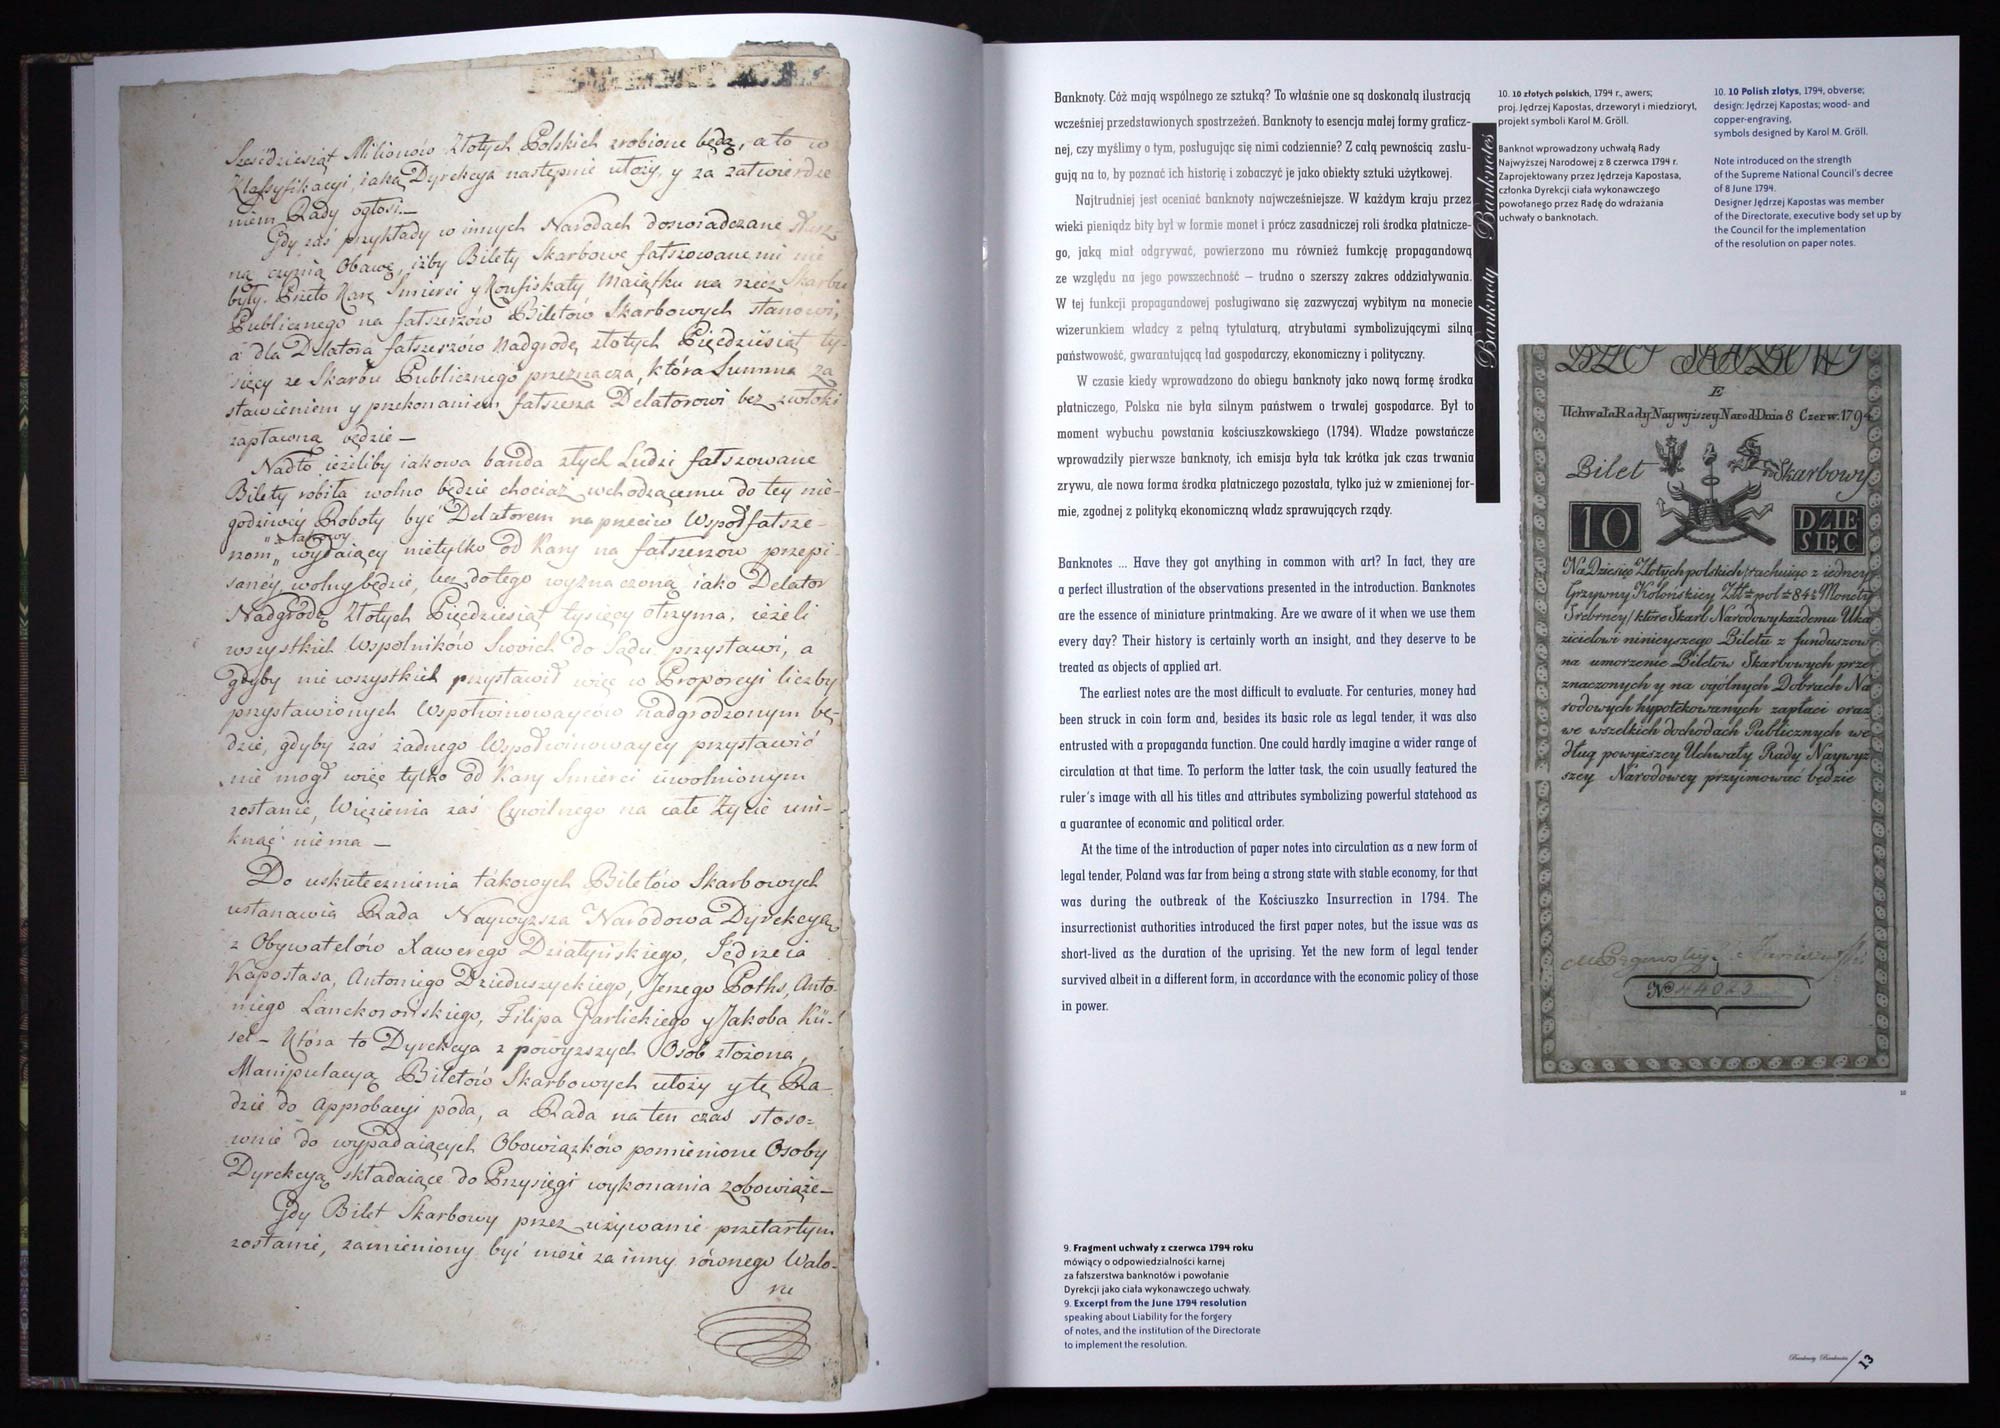 Sześćdziesiąt Milionów Złotych Polskich zrobione będą, a to w
Klassyfikacyi, iaką Dyrekcya następnie ułoży, y za zatwierdze
niem Rady ogłosi.—
Gdy zaś przykłady w innych Narodach doświadczane
ną czynią Obawę, iżby Bilety Skarbowe fałszowanemi nie
były. Przeto Karę Smierci y Konfiskaty Maiątku na rzecz Skarbu
Publicznego na fałszerzów Biletów Skarbowych stanowi,
a dla Delatora fałszerzów Nadgrodę złotych Pięćdziesiąt ty-
sięcy ze Skarbu Publicznego przeznacza, która Summa za
stawieniem y przekonaniem fałszerza Delatorowi bez zwłoki
zapłacona będzie —
Nadto ieżeliby iakowa banda złych Ludzi fałszowane
Bilety robiła wolno będzie chociaż wchodzącemu do tey nie-
godziwey Roboty być Delatorem na przeciw Wspołfałsze-
rzom, takowy wydaiący nietylko od Kary na fałszerzow przepi-
saney wolny będzie, lecz do tego wyznaczoną iako Delator
Nadgrodę Złotych Pięćdziesiąt tysięcy otrzyma, ieżeli
wszystkich Wspolników Swoich do Sądu przystawi, a
gdyby nie wszystkich przystawił więc w Proporcyi liczby
przystawionych Wspołwinowayców nadgrodzonym bę-
dzie, gdyby zaś żadnego Wspołwinowaycy przystawić
nie mogł więc tylko od Kary Smierci uwolnionym
zostanie, Więzienia zaś Cywilnego na całe Życie uni-
knąć nie ma —
Do uskutecznienia takowych Biletów Skarbowych
ustanawia Rada Naywyższa Narodowa Dyrekcyą
z Obywatelów Xawerego Działyńskiego, Jędrzeia
Kapostasa, Antoniego Dzieduszyckiego, Jerzego Poths, Anto-
niego Lanckorońskiego, Filipa Garlickiego y Jakoba Kü-
sel — Która to Dyrekcya z powyższych Osób złożona,
Manipulacyą Biletów Skarbowych ułoży y tę Ra-
dzie do Approbacyi poda, a Rada na ten czas stoso-
wnie do wypadaiących Obowiązków pomienione Osoby
Dyrekcyą składaiące do Przysięgi wykonania zobowiąże —
Gdy Bilet Skarbowy przez używanie przetartym
zostanie, zamieniony być może za inny równego Walo-
ru
Banknoty. Cóż mają wspólnego ze sztuką? To właśnie one są doskonałą ilustracją
wcześniej przedstawionych spostrzeżeń. Banknoty to esencja małej formy graficz-
nej, czy myślimy o tym, posługując się nimi codziennie? Z całą pewnością zasłu-
gują na to, by poznać ich historię i zobaczyć je jako obiekty sztuki użytkowej.
Najtrudniej jest oceniać banknoty najwcześniejsze. W każdym kraju przez
wieki pieniądz bity był w formie monet i prócz zasadniczej roli środka płatnicze-
go, jaką miał odgrywać, powierzono mu również funkcję propagandową
ze względu na jego powszechność – trudno o szerszy zakres oddziaływania.
W tej funkcji propagandowej posługiwano się zazwyczaj wybitym na monecie
wizerunkiem władcy z pełną tytulaturą, atrybutami symbolizującymi silną
państwowość, gwarantującą ład gospodarczy, ekonomiczny i polityczny.
W czasie kiedy wprowadzono do obiegu banknoty jako nową formę środka
płatniczego, Polska nie była silnym państwem o trwałej gospodarce. Był to
moment wybuchu powstania kościuszkowskiego (1794). Władze powstańcze
wprowadziły pierwsze banknoty, ich emisja była tak krótka jak czas trwania
zrywu, ale nowa forma środka płatniczego pozostała, tylko już w zmienionej for-
mie, zgodnej z polityką ekonomiczną władz sprawujących rządy.
Banknotes ... Have they got anything in common with art? In fact, they are
a perfect illustration of the observations presented in the introduction. Banknotes
are the essence of miniature printmaking. Are we aware of it when we use them
every day? Their history is certainly worth an insight, and they deserve to be
treated as objects of applied art.
The earliest notes are the most difficult to evaluate. For centuries, money had
been struck in coin form and, besides its basic role as legal tender, it was also
entrusted with a propaganda function. One could hardly imagine a wider range of
circulation at that time. To perform the latter task, the coin usually featured the
ruler's image with all his titles and attributes symbolizing powerful statehood as
a guarantee of economic and political order.
At the time of the introduction of paper notes into circulation as a new form of
legal tender, Poland was far from being a strong state with stable economy, for that
was during the outbreak of the Kościuszko Insurrection in 1794. The
insurrectionist authorities introduced the first paper notes, but the issue was as
short-lived as the duration of the uprising. Yet the new form of legal tender
survived albeit in a different form, in accordance with the economic policy of those
in power.
9. Fragment uchwały z czerwca 1794 roku
mówiący o odpowiedzialności karnej
za fałszerstwa banknotów i powołanie
Dyrekcji jako ciała wykonawczego uchwały.
9. Excerpt from the June 1794 resolution
speaking about Liability for the forgery
of notes, and the institution of the Directorate
to implement the resolution.
Banknoty Banknotes
10. 10 złotych polskich, 1794 r., awers;
proj. Jędrzej Kapostas, drzeworyt i miedzioryt,
projekt symboli Karol M. Gröll.
Banknot wprowadzony uchwałą Rady
Najwyższej Narodowej z 8 czerwca 1794 r.
Zaprojektowany przez Jędrzeja Kapostasa,
członka Dyrekcji ciała wykonawczego
powołanego przez Radę do wdrażania
uchwały o banknotach.
10. 10 Polish zlotys, 1794, obverse;
design: Jędrzej Kapostas; wood- and
copper-engraving,
symbols designed by Karol M. Gröll.
Note introduced on the strength
of the Supreme National Council's decree
of 8 June 1794.
Designer Jędrzej Kapostas was member
of the Directorate, executive body set up by
the Council for the implementation
of the resolution on paper notes.
Uchwała Rady Naywyższey Narod: Dnia 8 Czerw. 1794
Bilet Skarbowy
10 DZIE
SIĘC
Na Dziesięć Złotych polskich /rachuiąc z iedney
Grzywny Kolońskiey Złt: pol: 84½ Monety
Srebrney/ które Skarb Narodowy każdemu Uka
zicielowi ninieyszego Biletu z funduszow
na umorzenie Biletów Skarbowych prze
znaczonych y na ogólnych Dobrach Na
rodowych hypotekowanych zapłaci oraz
we wszelkich dochodach Publicznych we
dług powyższey Uchwały Rady Naywyż
szey Narodowey przyimować będzie
No
10
Banknoty Banknotes 13